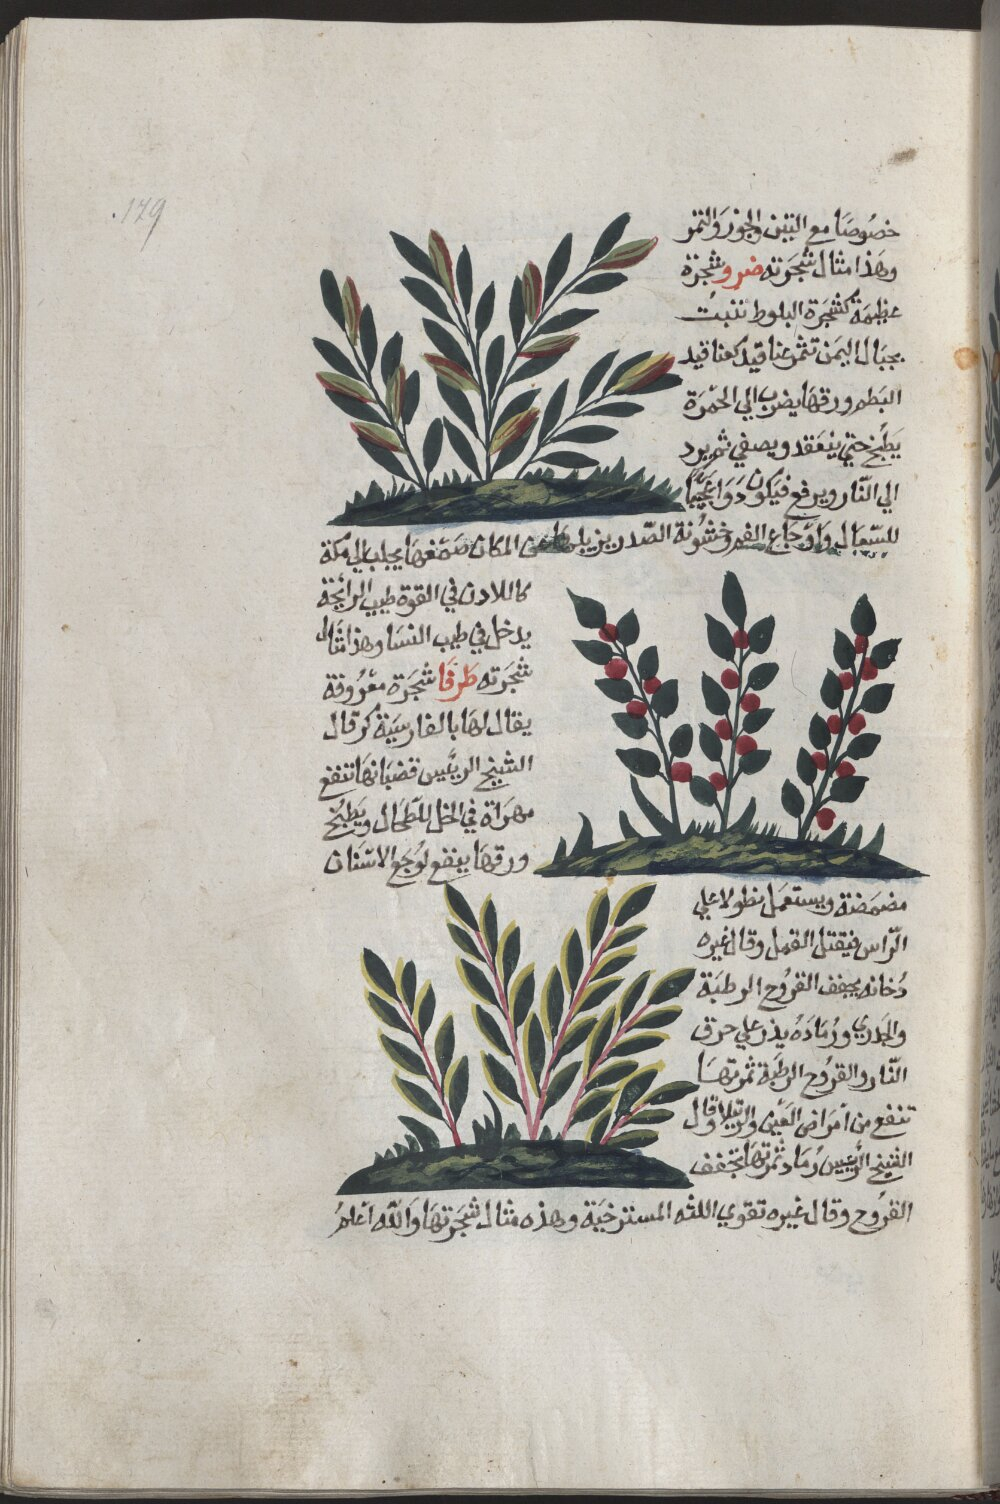 .179
خصُوصًا مع التين والجوز والتمر
وهَذا مثال شجَرته ضرو شجرة
عظيمَة كشجَرة البلوط تنبتُ
بجبَال اليمَن تثمر عناقيد كعناقيد
البَطم ورقهَا يضرب الي الحمْرَة
يطبخ حتي ينعَقد ويصفي ثم يرد
الي النّار ويرفع فيَكون دَوَا عَجيبًا
للسّعال وَاوْجَاع الفم وخشُونة الصّدر يزيلهَا عن المكان صَمْغهَا يجلب الي مكة
كاللادن في القوة طيب الرايحَة
يدخل في طيب النسَا وهذا مثال
شجَرته طَرفَا شجَرة معْرُوفة
يقال لهَا بالفارسيَة كز قال
الشيخ الرييس قضبَانهَا تنفع
مهرَاة في الخل للطحَال ويَطبخ
ورقهَا ينفع لوجَع الاسْنان
مضمضة ويستعمَل نطولا علي
الرّاس فيقتل القمل وقال غيره
دُخانه يجفف القرُوح الرطبَة
والجدَري ورُمَادَه يذر علي حرق
النّار والقرُوح الرطبَة ثمرتهَا
تنفع من امرَاض العَين والرتيلا وقال
الشيخ الرييس رُمَاد ثمرتهَا يجفف
القرُوح وقال غيره تقوي اللثه المسترخيَة وهذه مثال شجَرتهَا وَاللّه اعْلمُ